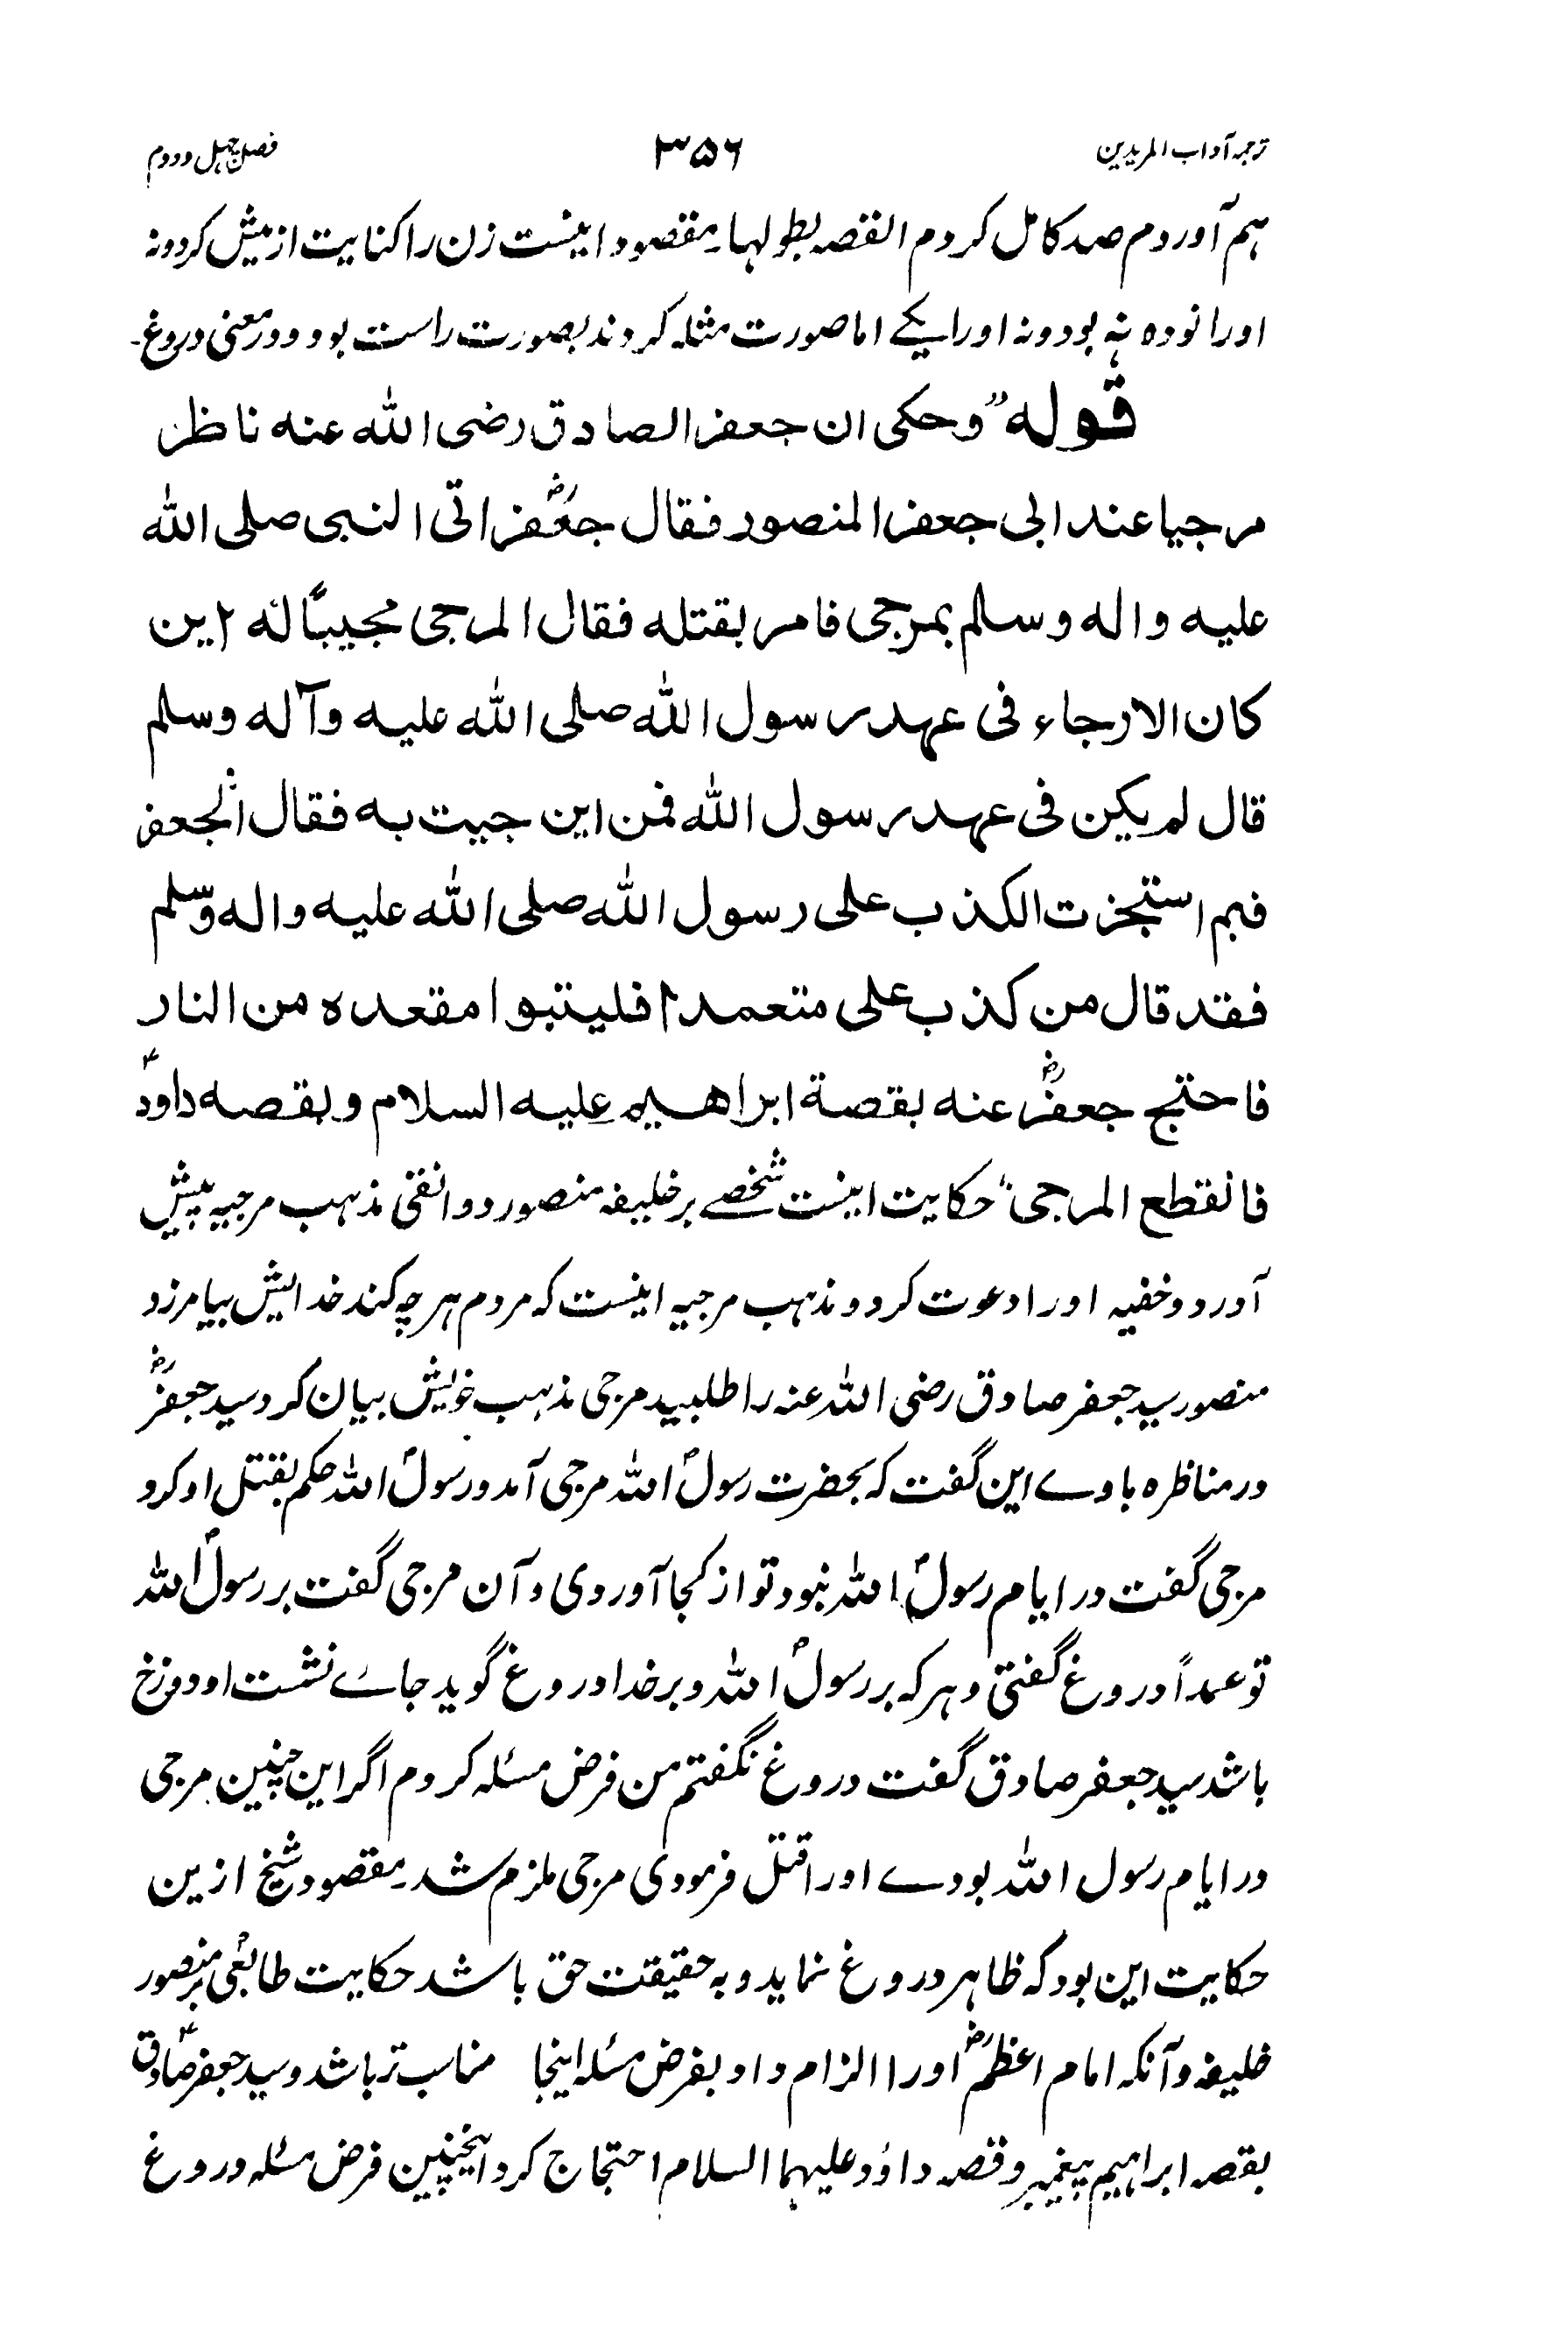 ترجمہ آداب المریدین ۳۵۶ فصل چہل و دوم
ہم آوردم صد کامل کردم القصہ بطولہا۔ مقصود اینست زن را کنایت از میش کرد و نہ
او را نود و نہ بود و نہ او را یکے اما صورت مثلہ کردند بصورت راست بود و در معنی دروغ۔
قوله "وحكى ان جعفر الصادق رضى الله عنه ناظر
مرجيا عند ابى جعفر المنصور فقال جعفرؓ اتى النبى صلى الله
عليه واله وسلم بمرجى فامر بقتله فقال المرجى مجيباً له اين
كان الارجاء فى عهد رسول الله صلى الله عليه وآله وسلم
قال لم يكن فى عهد رسول الله فمن اين جيت به فقال الجعفر
فبم استجزت الكذب على رسول الله صلى الله عليه واله وسلم
فقد قال من كذب على متعمدا فليتبوا مقعده من النار
فاحتج جعفرؓ عنه بقصة ابراهيم عليه السلام و بقصه داودؑ
فانقطع المرجى" حکایت اینست شخصے بر خلیفہ منصور دوانقی مذہب مرجیہ پیش
آورد و خفیہ او را دعوت کرد و مذہب مرجیہ اینست کہ مردم ہر چہ کند خدایش بیامرزد
منصور سید جعفر صادق رضی اللہ عنہ را طلبید مرجی مذہب خویش بیان کرد سید جعفرؓ
در مناظرہ با وے این گفت کہ بحضرت رسولؐ اللہ مرجی آمد و رسولؐ اللہ حکم بقتل او کرد
مرجی گفت در ایام رسولؐ اللہ نبود تو از کجا آوردی و آن مرجی گفت بر رسولؐ اللہ
تو عمداً دروغ گفتی و ہر کہ بر رسولؐ اللہ و بر خدا دروغ گوید جائے نشست او دوزخ
باشد سید جعفر صادق گفت دروغ نگفتم من فرض مسئلہ کردم اگر این چنین مرجی
در ایام رسول اللہ بودے او را قتل فرمودی مرجی ملزم شد۔ مقصود شیخ ازین
حکایت این بود کہ ظاہر دروغ نماید و بہ حقیقت حق باشد حکایت بر منصور
خلیفہ و آنکہ امام اعظمؓ او را الزام داد بفرض مسئلہ اینجا مناسب تر باشد و سید جعفر صادقؑ
بقصہ ابراہیم پیغمبر و قصہ داؤد علیہما السلام احتجاج کرد اینچنین فرض مسئلہ دروغ